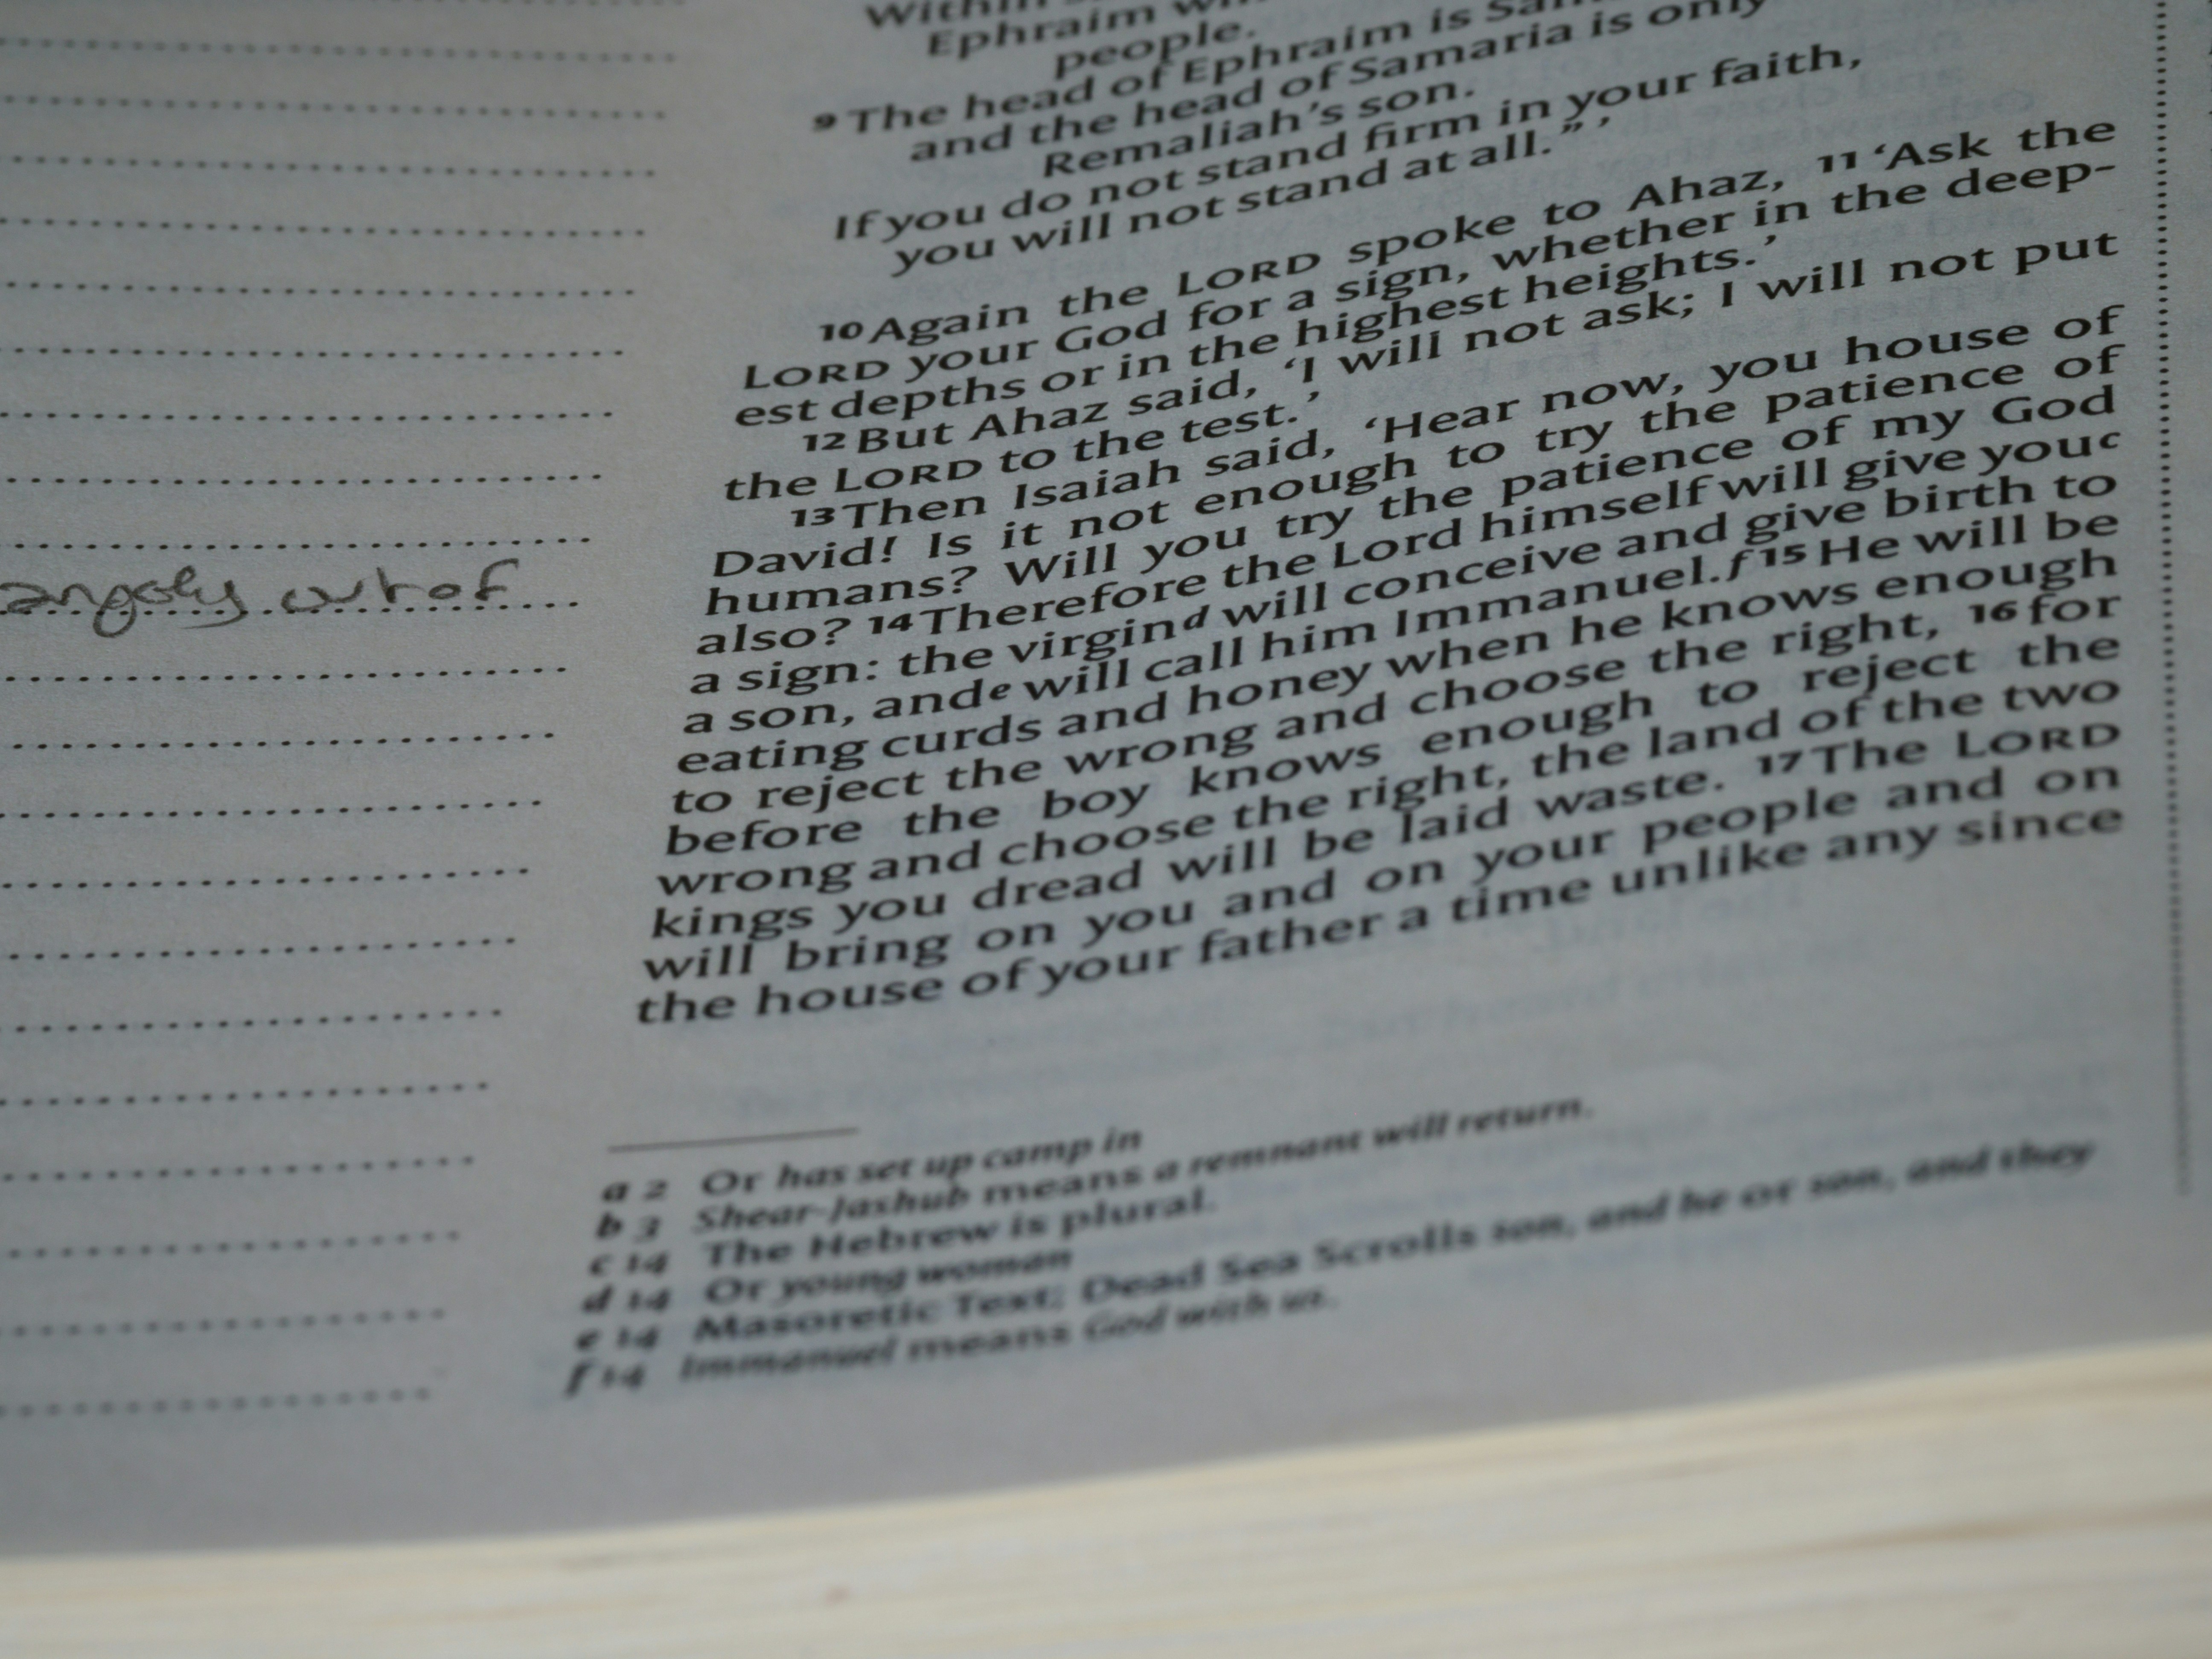 Within
Ephraim
people.
9 The head of Ephraim is
and the head of Samaria is only
Remaliah's son.
If you do not stand firm in your faith,
you will not stand at all." '
10 Again the LORD spoke to Ahaz, 11 'Ask the
LORD your God for a sign, whether in the deep-
est depths or in the highest heights.'
12 But Ahaz said, 'I will not ask; I will not put
the LORD to the test.'
13 Then Isaiah said, 'Hear now, you house of
David! Is it not enough to try the patience of
humans? Will you try the patience of my God
also? 14 Therefore the Lord himself will give you c
a sign: the virgin d will conceive and give birth to
a son, and e will call him Immanuel. f 15 He will be
eating curds and honey when he knows enough
to reject the wrong and choose the right, 16 for
before the boy knows enough to reject the
wrong and choose the right, the land of the two
kings you dread will be laid waste. 17 The LORD
will bring on you and on your people and on
the house of your father a time unlike any since
a 2 Or has set up camp in
b 3 Shear-Jashub means a remnant will return.
c 14 The Hebrew is plural.
d 14 Or young woman
e 14 Masoretic Text; Dead Sea Scrolls son, and he or son, and they
f 14 Immanuel means God with us.
out of